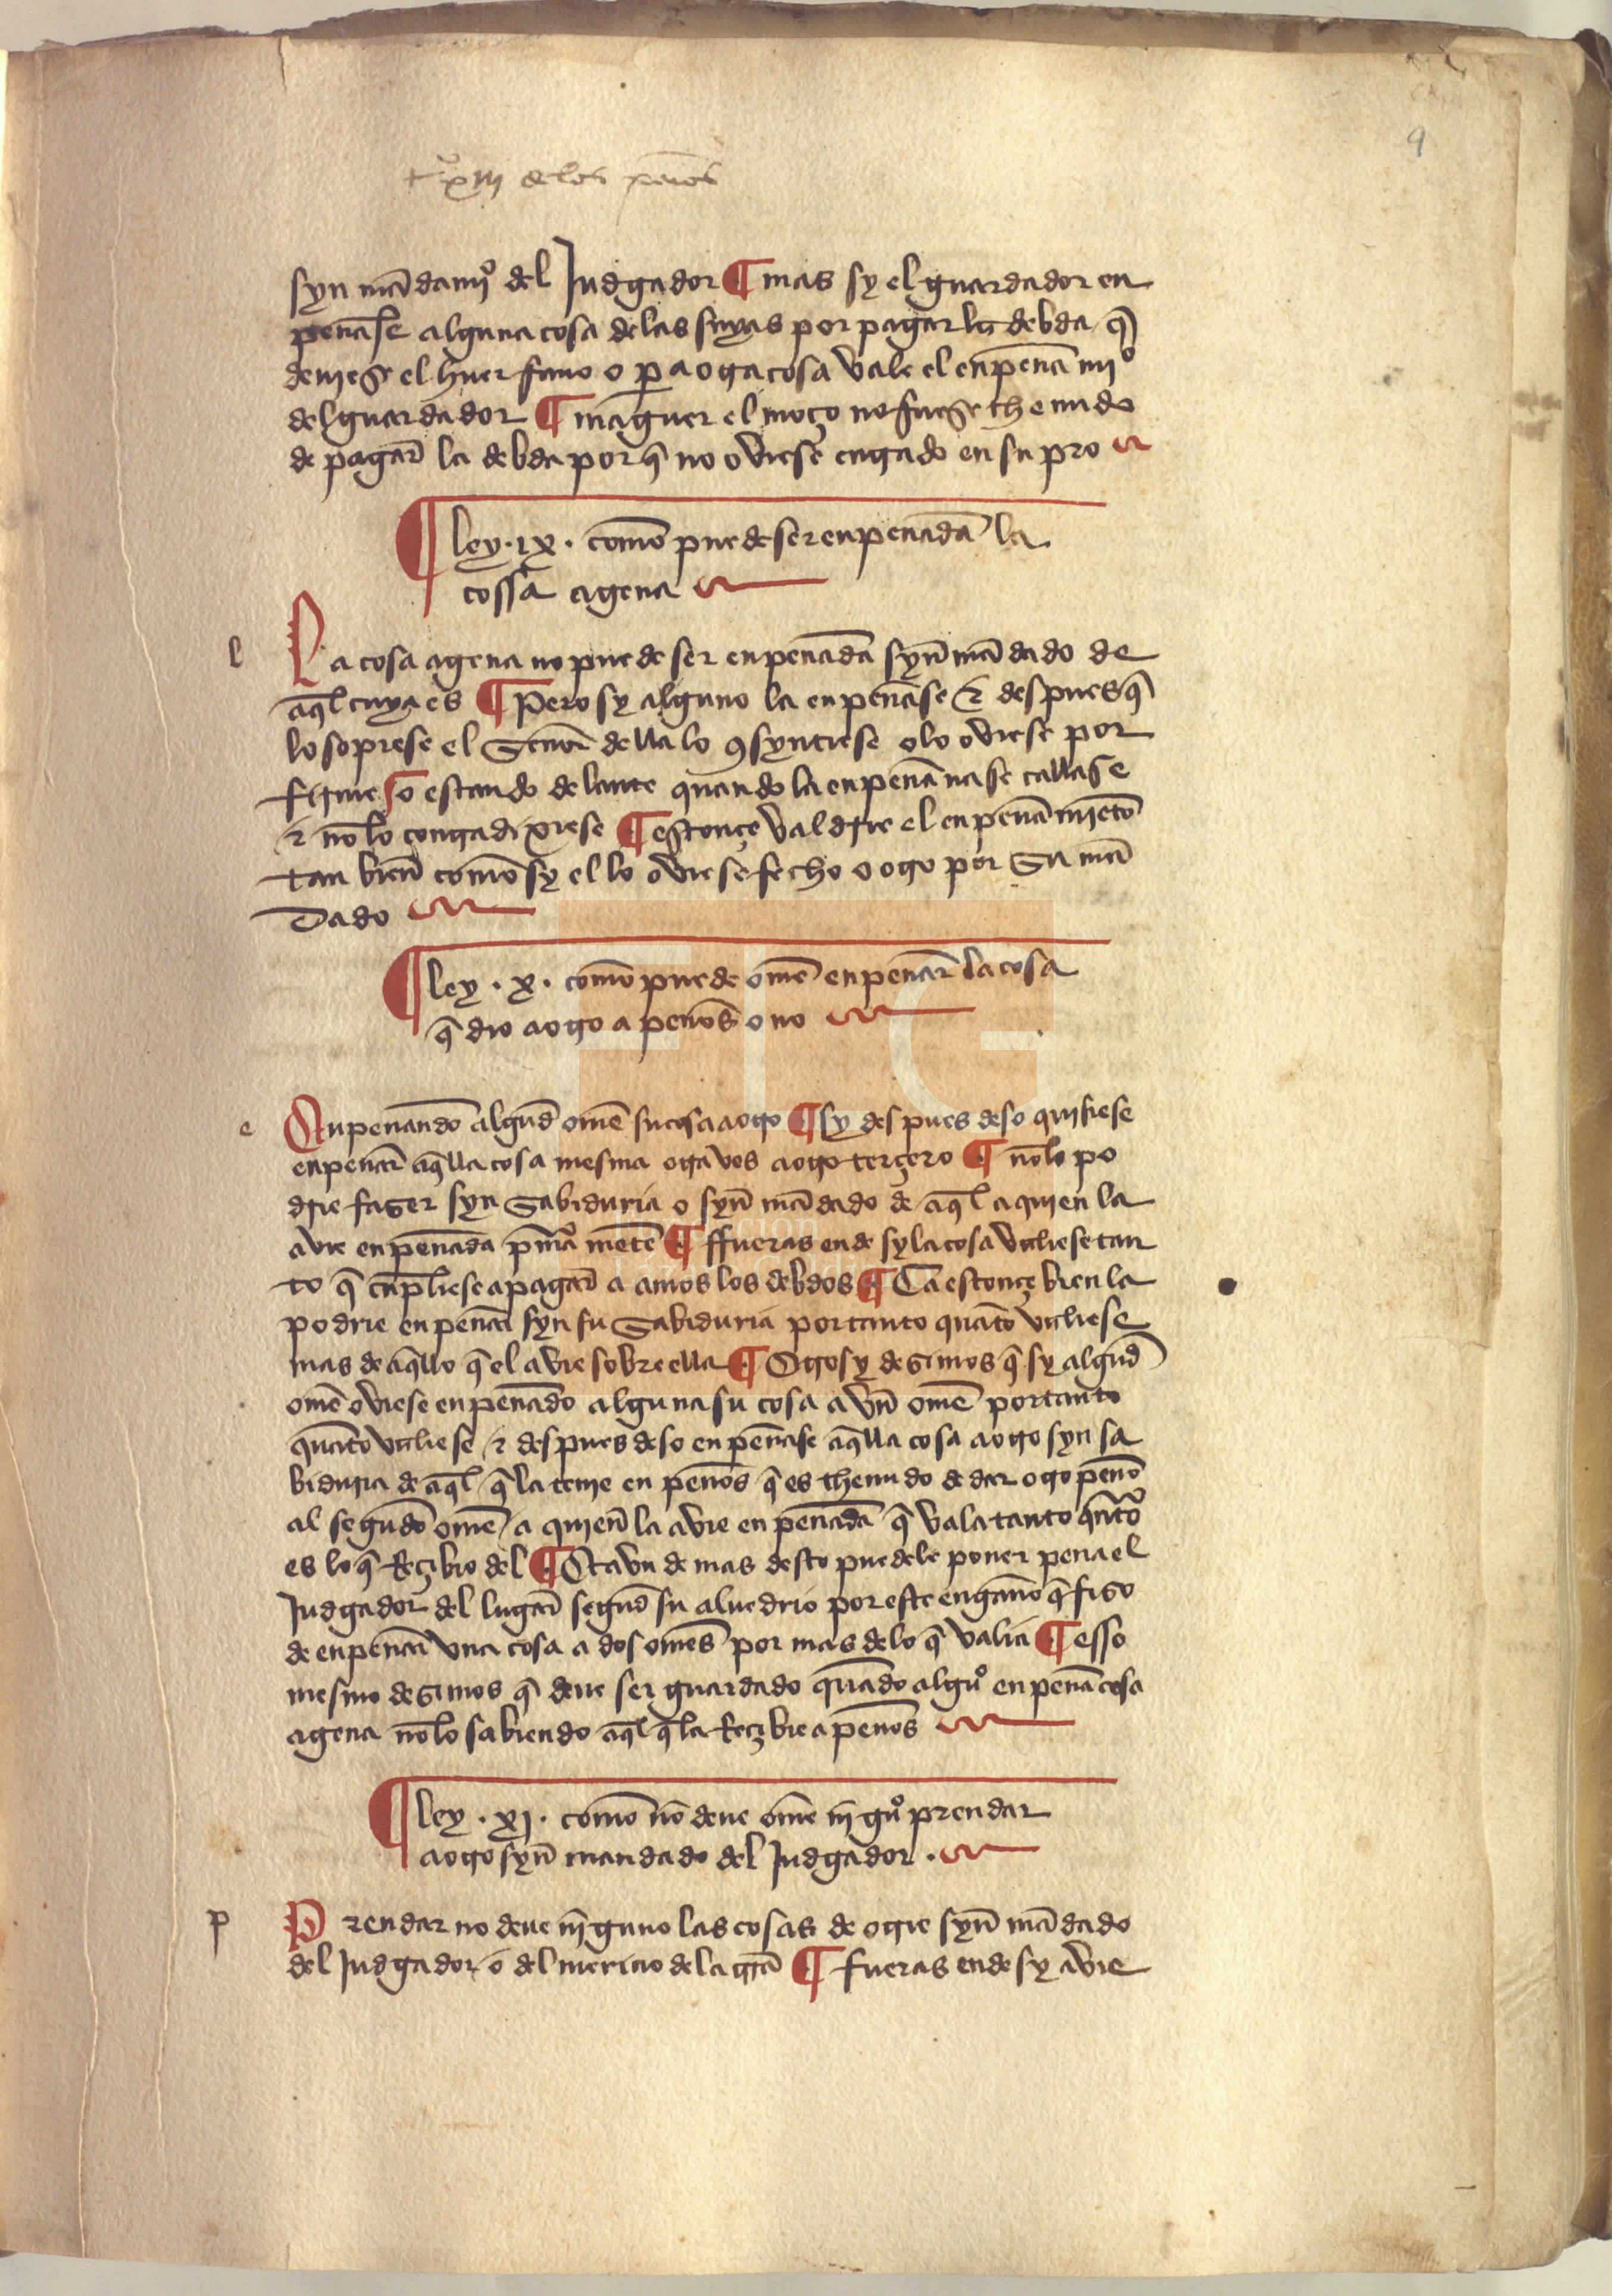 9
tº xiij de los peños
syn mādamjº del Judgador ¶ mas sy el guardador en
penase alguna cosa delas suyas por pagar la debda q̄
deuiese el huerfano o pa otra cosa vale el enpenamjº
del guardador ¶ maguer el moço no fuese thenudo
de pagar la debda por q̄ no oviese entrado en su pro
¶ ley · ix · como puede ser enpenada la
cossa agena
l La cosa agena no puede ser enpenada syn mādado de
aql̄ cuya es ¶ Pero sy alguno la enpenase & despues q̄
lo sopiese el Señor della lo ꝯsyntiese o lo oviese por
firme o estando delante quando la enpenauan se callase
& nō lo contradixiese ¶ estonçe valdrie el enpenamiēto
tan bien como sy el lo oviese fecho o otro por Su mā
Dado
¶ ley · x · como puede ome enpenar la cosa
q̄ dio a otro a penos o no
e Enpenando algud ome su cosa a otro ¶ sy despues deso quisiese
enpenar aq̄lla cosa mesma otra ves a otro terçero ¶ nō lo po
drie faser syn Sabiduria o syn mādado de aql̄ a quien la
avie enpenada pmªmēte ¶ ffueras ende sy la cosa valiese tan
to q̄ cūpliese a pagar a amos los debdos ¶ Ca estonçe bien la
podrie enpenar syn su Sabiduria por tanto quāto valiese
mas de aq̄llo q̄ el avie sobre ella ¶ Otrosy desimos q̄ sy algud
ome oviese enpenado alguna su cosa a vn ome por tanto
quāto valiese & despues deso enpenase aq̄lla cosa a otro syn sa
biduria de aql̄ q̄ la tiene en penos q̄ es thenudo de dar otro peno
al segudo ome a quien la avie enpenada q̄ vala tanto qn̄to
es lo q̄ Reçibio del ¶ Et avn de mas desto puedele poner pena el
Judgador del lugar segud su aluedrio por este engano q̄ fiso
de enpenar vna cosa a dos omes por mas delo q̄ valia ¶ esso
mesmo desimos q̄ deue ser guardado quādo algūº enpena cosa
agena nō lo sabiendo aql̄ q̄ la Reçibie a penos
¶ ley · xj · como nō deue ome nīgūº prendar
a otro syn mandado del Judgador ·
p Prendar no deue nīguno las cosas de otrie syn mādado
del Judgador o del merino dela trrā ¶ fueras ende sy avie